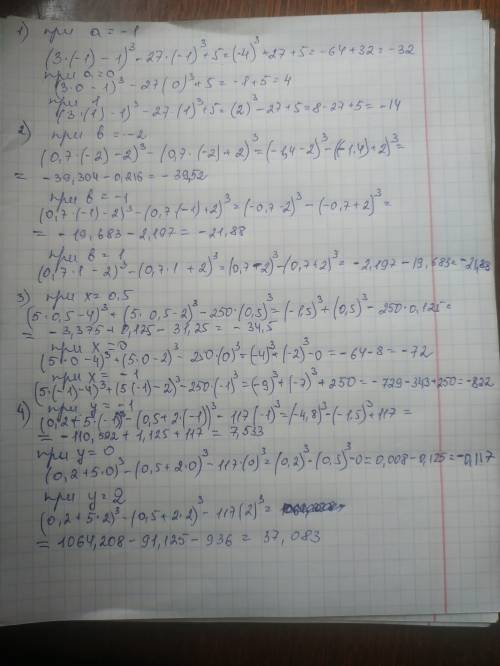 1) при a = -1
(3·(-1)-1)³-27·(-1)³+5=(-4)³+27+5=-64+32=-32
при a=0
(3·0-1)³-27(0)³+5=-8+5=4
при 1
(3·(1)-1)³-27·(1)³+5=(2)³-27+5=8-27+5=-14
2) при в=-2
(0,7·(-2)-2)³-(0,7·(-2)+2)³=(-1,4-2)³-((-1,4)+2)³=
= -39,304-0,216=-39,52
при в=-1
(0,7·(-1)-2)³-(0,7(-1)+2)³=(-0,7-2)³-(-0,7+2)³=
= -19,683-2,197=-21,88
при в=1
(0,7·1-2)³-(0,7·1+2)³=(0,7-2)³-(0,7+2)³=-2,197-19,683=-21,88
3) при x=0,5
(5·0,5-4)³+(5·0,5-2)³-250(0,5)³=(-1,5)³+(0,5)³-250·0,125=
= -3,375+0,125-31,25=-34,5
при x=0
(5·0-4)³+(5·0-2)³-250(0)³=(-4)³+(-2)³-0=-64-8=-72
при x=-1
(5·(-1)-4)³+(5(-1)-2)³-250(-1)³=(-9)³+(-7)³+250=-729-343+250=-822
4) при y=-1
(0,2+5·(-1))³-(0,5+2·(-1))³-117(-1)³=(-4,8)³-(-1,5)³+117=
= -110,592+1,125+117=7,533
при y=0
(0,2+5·0)³-(0,5+2·0)³-117·(0)³=(0,2)³-(0,5)³-0=0,008-0,125=-0,117
при y=2
(0,2+5·2)³-(0,5+2·2)³-117(2)³=
= 1064,208-91,125-936=37,083